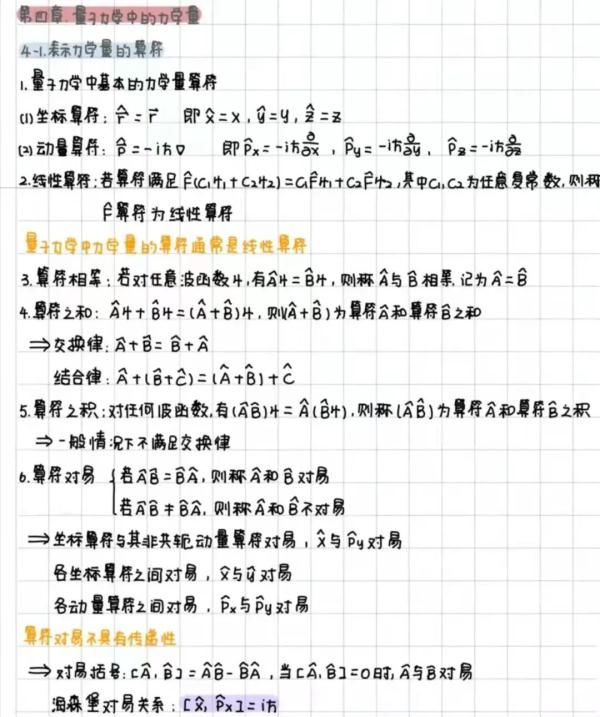 第四章.量子力学中的力学量
4-1.表示力学量的算符
1.量子力学中基本的力学量算符
(1)坐标算符:r̂=r⃗ 即x̂=x,ŷ=y,ẑ=z
(2)动量算符:p̂=-iħ∇ 即p̂x=-iħ∂/∂x,p̂y=-iħ∂/∂y,p̂z=-iħ∂/∂z
2.线性算符:若算符满足F̂(C₁ψ₁+C₂ψ₂)=C₁F̂ψ₁+C₂F̂ψ₂,其中C₁,C₂为任意复常数,则称
F̂算符为线性算符
量子力学中力学量的算符通常是线性算符
3.算符相等:若对任意波函数ψ,有Âψ=B̂ψ,则称Â与B̂相等,记为Â=B̂
4.算符之和:Âψ+B̂ψ=(Â+B̂)ψ,则(Â+B̂)为算符Â和算符B̂之和
⇒交换律:Â+B̂=B̂+Â
结合律:Â+(B̂+Ĉ)=(Â+B̂)+Ĉ
5.算符之积:对任何波函数,有(ÂB̂)ψ=Â(B̂ψ),则称(ÂB̂)为算符Â和算符B̂之积
⇒一般情况下不满足交换律
6.算符对易 {若ÂB̂=B̂Â,则称Â和B̂对易
若ÂB̂≠B̂Â,则称Â和B̂不对易
⇒坐标算符与其非共轭动量算符对易,x̂与p̂y对易
各坐标算符之间对易,x̂与ŷ对易
各动量算符之间对易,p̂x与p̂y对易
算符对易不具有传递性
⇒对易括号:[Â,B̂]=ÂB̂-B̂Â,当[Â,B̂]=0时,Â与B̂对易
海森堡对易关系:[x̂,p̂x]=iħ